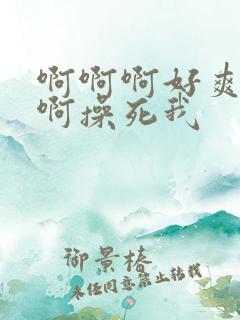 啊啊啊好爽
啊操死我
御景椿
未经同意禁止转载